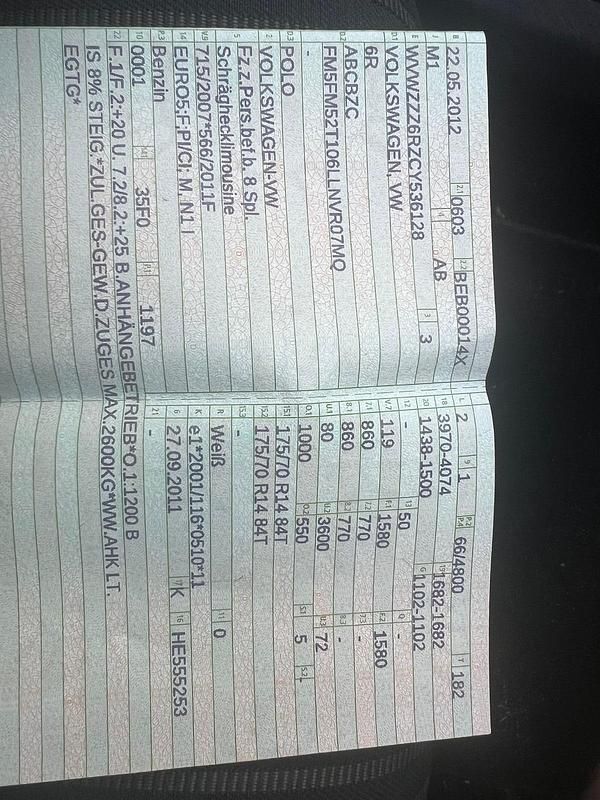 B 22.05.2012 2.1 0603 2.2 BEB00014X
J M1 4 AB
E WVWZZZ6RZCY536128 3 3
D.1 VOLKSWAGEN, VW
6R
D.2 ABCBZC
FM5FM52T106LLNVR07MQ
-
D.3 POLO
2 VOLKSWAGEN-VW
5 Fz.z.Pers.bef.b. 8 Spl.
Schräghecklimousine
V.9 715/2007*566/2011F
14 EURO5;F;PI/CI; M, N1 I
P.3 Benzin
10 0001 14.1 35F0 P.1 1197
22 F.1/F.2:+20 U. 7.2/8.2:+25 B.ANHÄNGEBETRIEB*O.1:1200 B
IS 8% STEIG.*ZUL.GES-GEW.D.ZUGES MAX.2600KG*WW.AHK LT.
EGTG*
L 2 9 1 P.2 P.4 66/4800 T 182
18 3970-4074 19 1682-1682
20 1438-1500 G 1102-1102
12 - 13 50 Q -
V.7 119 F.1 1580 F.2 1580
7.1 860 7.2 770 7.3 -
8.1 860 8.2 770 8.3 -
U.1 80 U.2 3600 U.3 72
O.1 1000 O.2 550 S.1 5 S.2 -
15.1 175/70 R14 84T
15.2 175/70 R14 84T
15.3 -
R Weiß 11 0
K e1*2001/116*0510*11
6 27.09.2011 17 K 16 HE555253
21 -